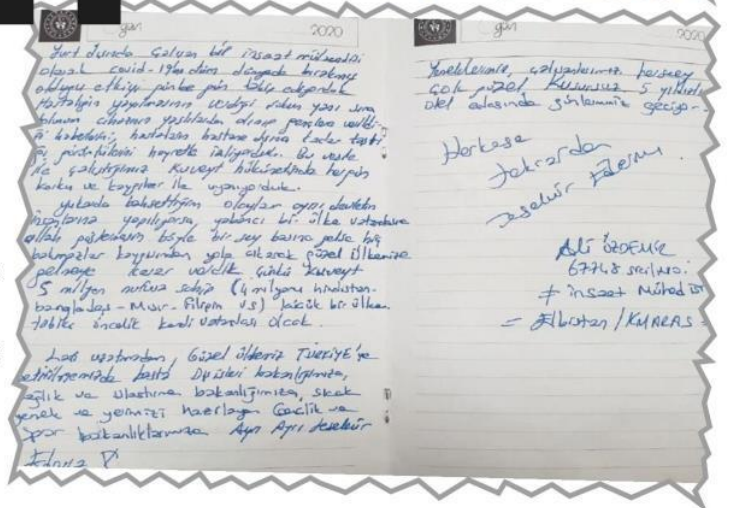 gün 2020
Yurt dışında çalışan bir inşaat mühendisi
olarak covid-19'un tüm dünyada bırakmış
olduğu etkiyi günbe gün takip ediyorduk
Hastalığın yayılmasının verdiği yanı sıra
yaşlılardan alınıp gençlere verildi-
ği haberlerini, hastaların hastane dışına kadar taştı-
ğı görüntülerini hayretle izliyorduk. Bu vesile
ile çalıştığımız Kuveyt hükümetinde hergün
korku ve kaygılar ile uyanıyorduk.
yukarıda bahsettiğim olaylar aynı devletin
insanlarına yapılıyorsa yabancı bir ülke vatandaşına
allah göstermesin böyle bir şey başına gelse hiç
bakmazlar kaygısından yola çıkarak güzel ülkemize
gelmeye karar verdik çünkü Kuveyt
5 milyon nüfusa sahip (4 milyonu hindistan-
bangladaş - Mısır - Filipin vs) küçük bir ülke.
tabiki öncelik kendi vatandaşı olcak.
Lafı uzatmadan, Güzel ülkemiz TÜRKİYE'ye
getirilişimizde başta Dış işleri bakanlığımıza,
sağlık ve ulaştırma bakanlığımıza, sıcak
yemek ve yerimizi hazırlayan Gençlik ve
Spor bakanlıklarımıza Ayrı Ayrı teşekkür
gün 2020
Yemeklerimiz, çalışanlarımız herşey
çok güzel kusursuz 5 yıldızlı
otel odasında günlerimiz geçiyor.
Herkese
tekrardan
teşekkür Ederim.
Ali ÖZDEMİR
67748
İnşaat Mühendisi
= Elbistan / K.MARAŞ =